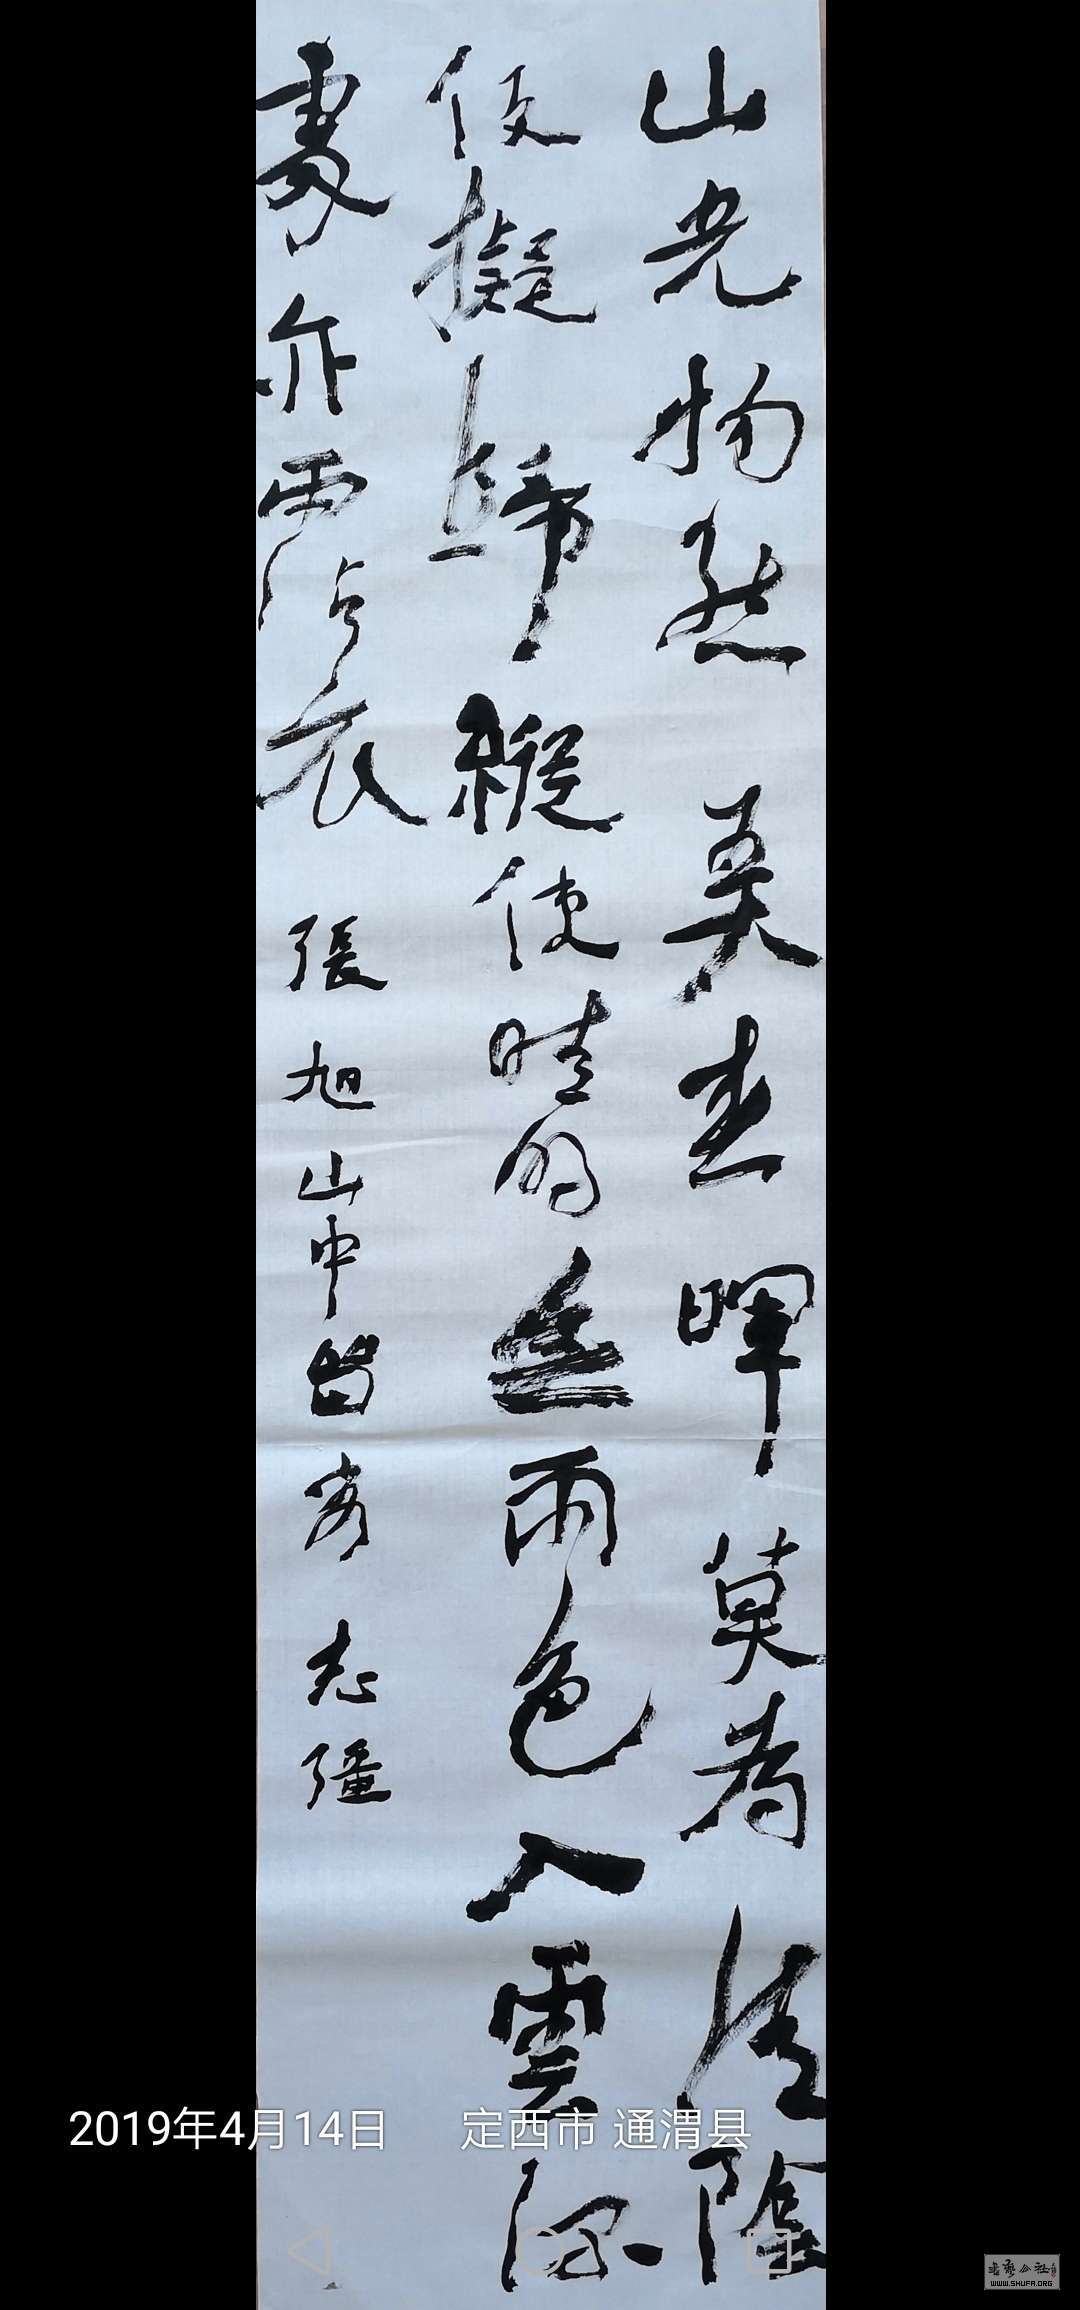 山光物態弄春暉莫為輕陰
便擬歸縱使晴明無雨色入雲深
處亦霑衣 張旭山中留客 志彊
2019年4月14日 定西市 通渭县
WWW.SHUFA.ORG